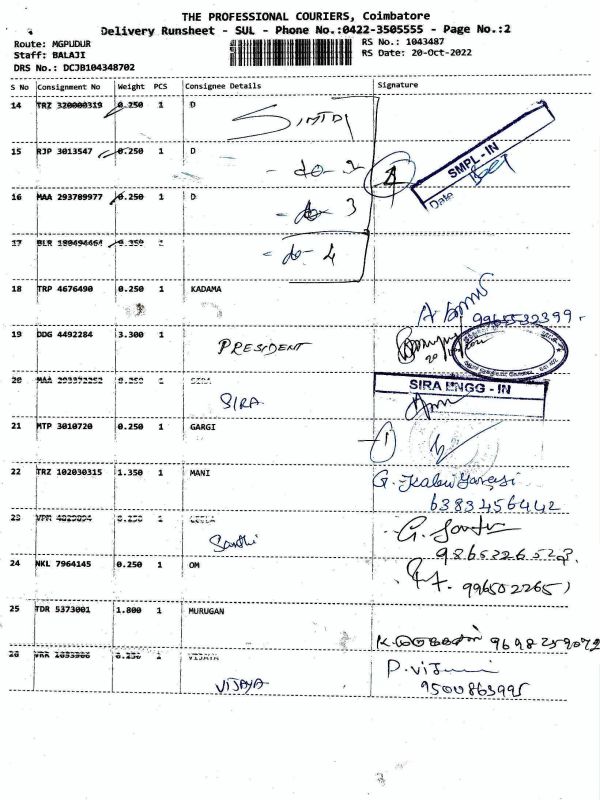 THE PROFESSIONAL COURIERS, Coimbatore
Delivery Runsheet - SUL - Phone No.:0422-3505555 - Page No.:2
Route: MGPUDUR
RS No.: 1043487
Staff: BALAJI
RS Date: 20-Oct-2022
DRS No.: DCJB104348702
S No Consignment No Weight PCS Consignee Details Signature
14 TRZ 320000319 0.250 1 D
15 RJP 3013547 0.250 1 D
- do - 2
SMPL - IN
Date
16 MAA 293789977 0.250 1 D
- do - 3
17 BLR 180494464 0.350 1
- do - 4
18 TRP 4676490 0.250 1 KADAMA
9965532399
19 DDG 4492284 3.300 1
PRESIDENT
20 MAA 293372252 0.250 1 SIRA
SIRA
SIRA ENGG - IN
21 MTP 3010720 0.250 1 GARGI
22 TRZ 102030315 1.350 1 MANI
6383456442
23 VPM 4829894 0.250 1 LEELA
Santhi
24 NKL 7964145 0.250 1 OM
25 TDR 5373001 1.800 1 MURUGAN
9698259072
26 0.250 1 VIJAYA
VIJAYA
9500863995